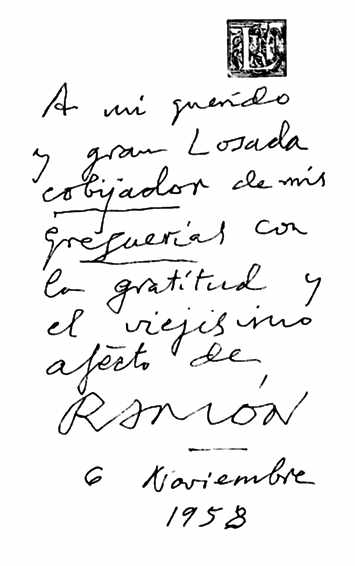 L
A mi querido
y gran Losada
cobijador de mis
greguerías con
la gratitud y
el viejisimo
afecto de
RAMÓN
6 Noviembre
1958